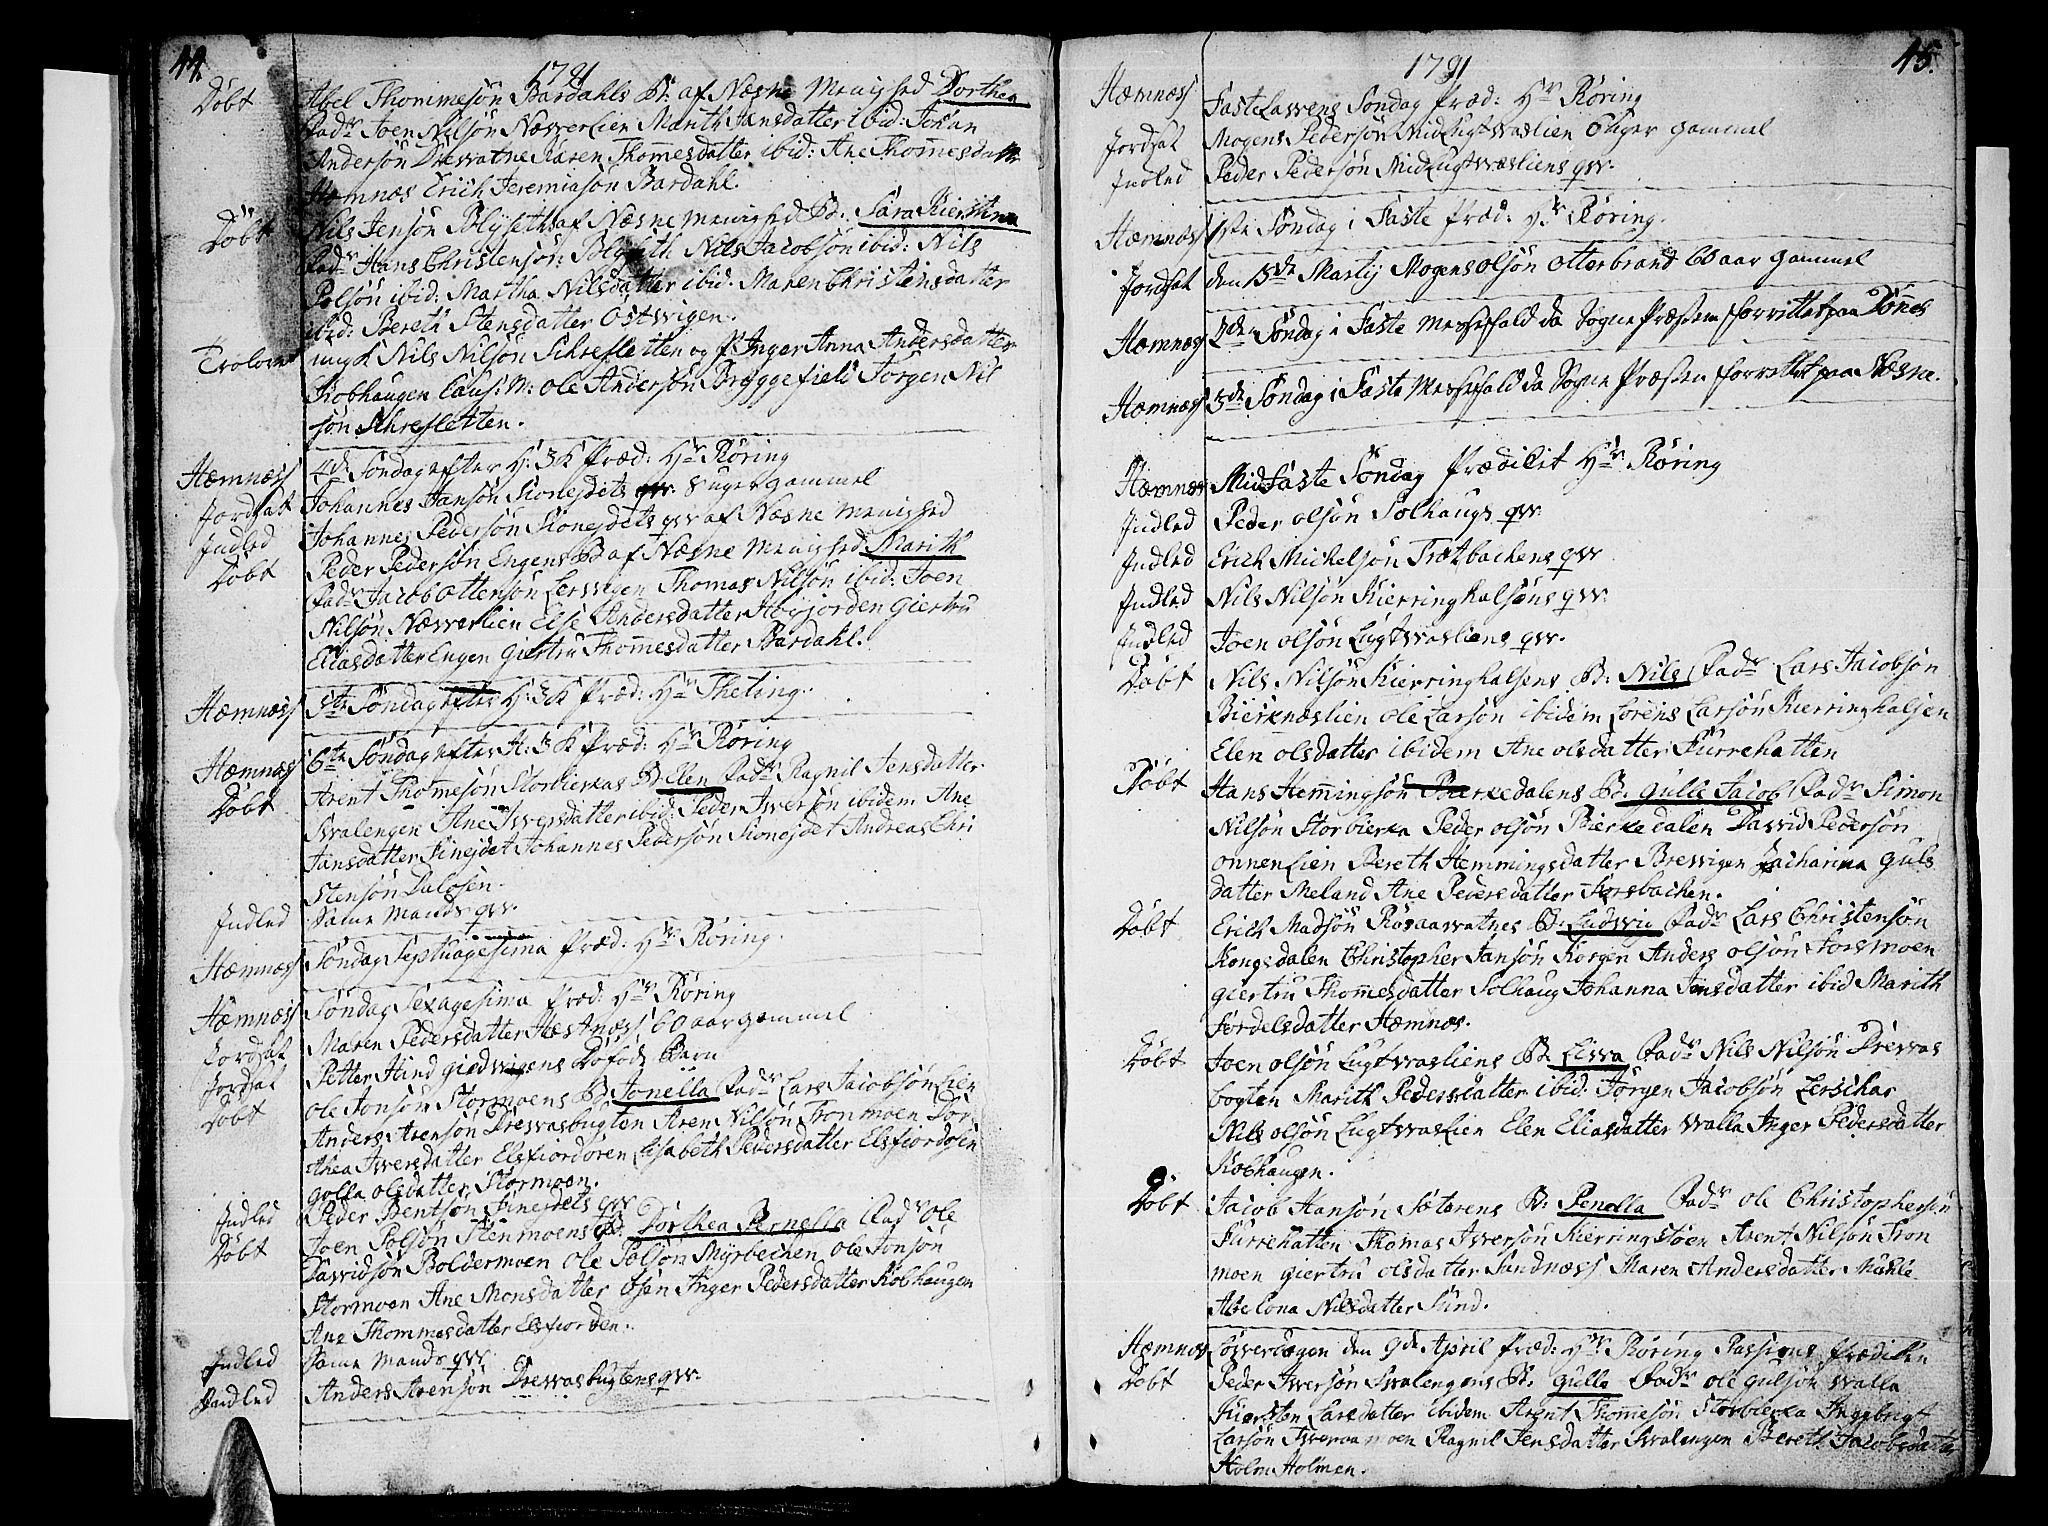 44.
1791
Döbt Abel Thommesön Bardahls B: af Næsne Menighed Dorthea
Fadr Joen Nilsön Næsverlien Marith Jansdatter ibid: Johan
Andersön Drevatne Karen Thommesdatter ibid: Ane Thommesdatter
Hemnæs Erich Jeremiasön Bardahl.
Döbt Nils Jensön Blyseths af Næsne Menighed B: Sara Kierstina
Fadr Hans Christensön Blyseth Nils Jacobsön ibid: Nils
Polsön ibid: Martha Nilsdatter ibid: Maren Christensdatter
ibid: Bereth Stensdatter Östvigen.
Trolovet ungk Nils Nilsön Schresletten og P: Inger Anna Andersdatter
Kobhaugen Caus: M: Ole Andersön Bryggefield Jörgen Nil
sön Schresletten.
Hæmnæss 4de Söndag efter H: 3K Præd: Hr Röring
Jordsat Johannes Jansön Konejdets 8 uger gammel
Indled Johannes Pedersön Konejdets qv: af Næsne Menighed
Döbt Peder Pedersön Engens B af Næsne Menighed Marith
Fadr Jacob Ottersön Lervigen Thomas Nilsön ibid: Joen
Nilsön Næsverlien Else Andersdatter Högjorden Giertru
Eliasdatter Engen Giertru Thommesdatter Bardahl.
Hæmnæss 5te Söndag efter H: 3K Præd: Hr Theting.
Hæmnæss 6te Söndag efter H: 3K Præd: Hr Röring
Döbt Arent Thomesön Storbierkas B: Elen Fadr Ragnil Jensdatter
Svalengen Ane Iversdatter ibid: Peder Iversön ibidem Ane
Jansdatter Finejdet Johannes Pedersön Konejdet Andreas Chri
stensön Dalosen.
Indled Same Mands qv.
Hæmnæss Söndag Septuagesima Præd: Hr Röring.
Hæmnæss Söndag Sexagesima Præd: Hr Röring
Jordsat Maren Pedersdatter Hestnæss 60 aar gammel
Jordsat Petter Hind Giedvigens Döföd Barn
Döbt Ole Jonsön Stormoens B: Jonella Fadr Lars Jacobsön Lien
Anders Arensön Drevasbugten Aren Nilsön Tronmoen Dor
thea Iversdatter Elsfiordören Lisabeth Pedersdatter Elsfiordosen
Golla Olsdatter Stormoen.
Indled Peder Bentsön Finejdets qv
Döbt Joen Polsön Stenmoens B: Dorthea Pernella Fadr Ole
Davidsön Boldermoen Ole Polsön Myrbechen Ole Jonsön
Stormoen Ane Monsdatter Osen Inger Pedersdatter Kobhaugen
Ane Thommesdatter Elsfiorden.
Indled Same Mands qv.
Indled Anders Arensön Drevasbugtens qv.
45.
1791
Hæmnæss Fastelavens Söndag Præd: Hr Röring
Jordsat Mogens Pedersön MidLugtvaslien 6 Uger gammel
Indled Peder Pedersön MidLugtvasliens qv.
Hæmnæss 1ste Söndag i Faste Præd: Hr Röring.
Jordsat den 15de Martij Mogens Olsön Otterbrand 60 aar gammel
Hæmnæss 2den Söndag i Faste Messefald da Sogne Præsten forrettet paa Dönnes
Hæmnæss 3de Söndag i Faste Messefald da Sogne Præsten forrettet paa Næsne.
Hæmnæs MidFaste Söndag Prædiket Hr Röring
Indled Peder Olsön Solhaugs qv.
Indled Erich Michelsön Trætbachens qv
Indled Nils Nilsön Kierringhalsens qv.
Indled Joen Olsön Lugtvasliens qv.
Döbt Nils Nilsön Kierringhalsens B: Nils Fadr Lars Jacobsön
Bierknæslien Ole Larsön ibidem Lorens Larsön Kierringhalsen
Elen Olsdatter ibidem Ane Olsdatter Furrehatten
Döbt Hans Hemmingsön Bierkedalens B: Gulle Jacob Fadr Simon
Nilsön Storbierka Peder Olsön Bierkedalen David Pedersön
Onnenlien Bereth Hemmingsdatter Brevigen Zacharina Guls
datter Meland Ane Pedersdatter Forsbachen.
Döbt Erich Madsön Rösaavatnes B: Ludvig Fadr Lars Christensön
Kongsdalen Christopher Jansön Korgen Anders Olsön Forsmoen
Giertru Thommesdatter Solhaug Johanna Jonsdatter ibid Marith
Fordelsdatter Hæmnæs.
Döbt Joen Olsön Lugtvasliens B: Lisva Fadr Nils Nilsön Drevas
bogten Marith Pedersdatter ibid: Jörgen Jacobsön Lerschar
Nils Olsön Lugtvaslien Elen Eliasdatter Valla Inger Pedersdatter
Kobhaugen.
Döbt Jacob Hansön Sæterens B: Penella Fadr Ole Christophersön
Furrehatten Thomas Iversön Kierringstöen Arent Nilsön Tron
moen Giertru Olsdatter Sandnæss Maren Andersdatter Mehle
Abelona Nilsdatter Sund.
Hæmnæs Löverdagen den 9de April Præd: Hr Röring Passions Prædiken
Döbt Peder Iversön Svalengens B: Gulle Fadr Ole Gulsön Valla
Kiersten Larsdatter ibidem Arent Thommesön Storbierka Ingebrigt
Larsön Iveramoen Ragnil Jensdatter Svalengen Bereth Jacobsdatter
Holm Holmen.